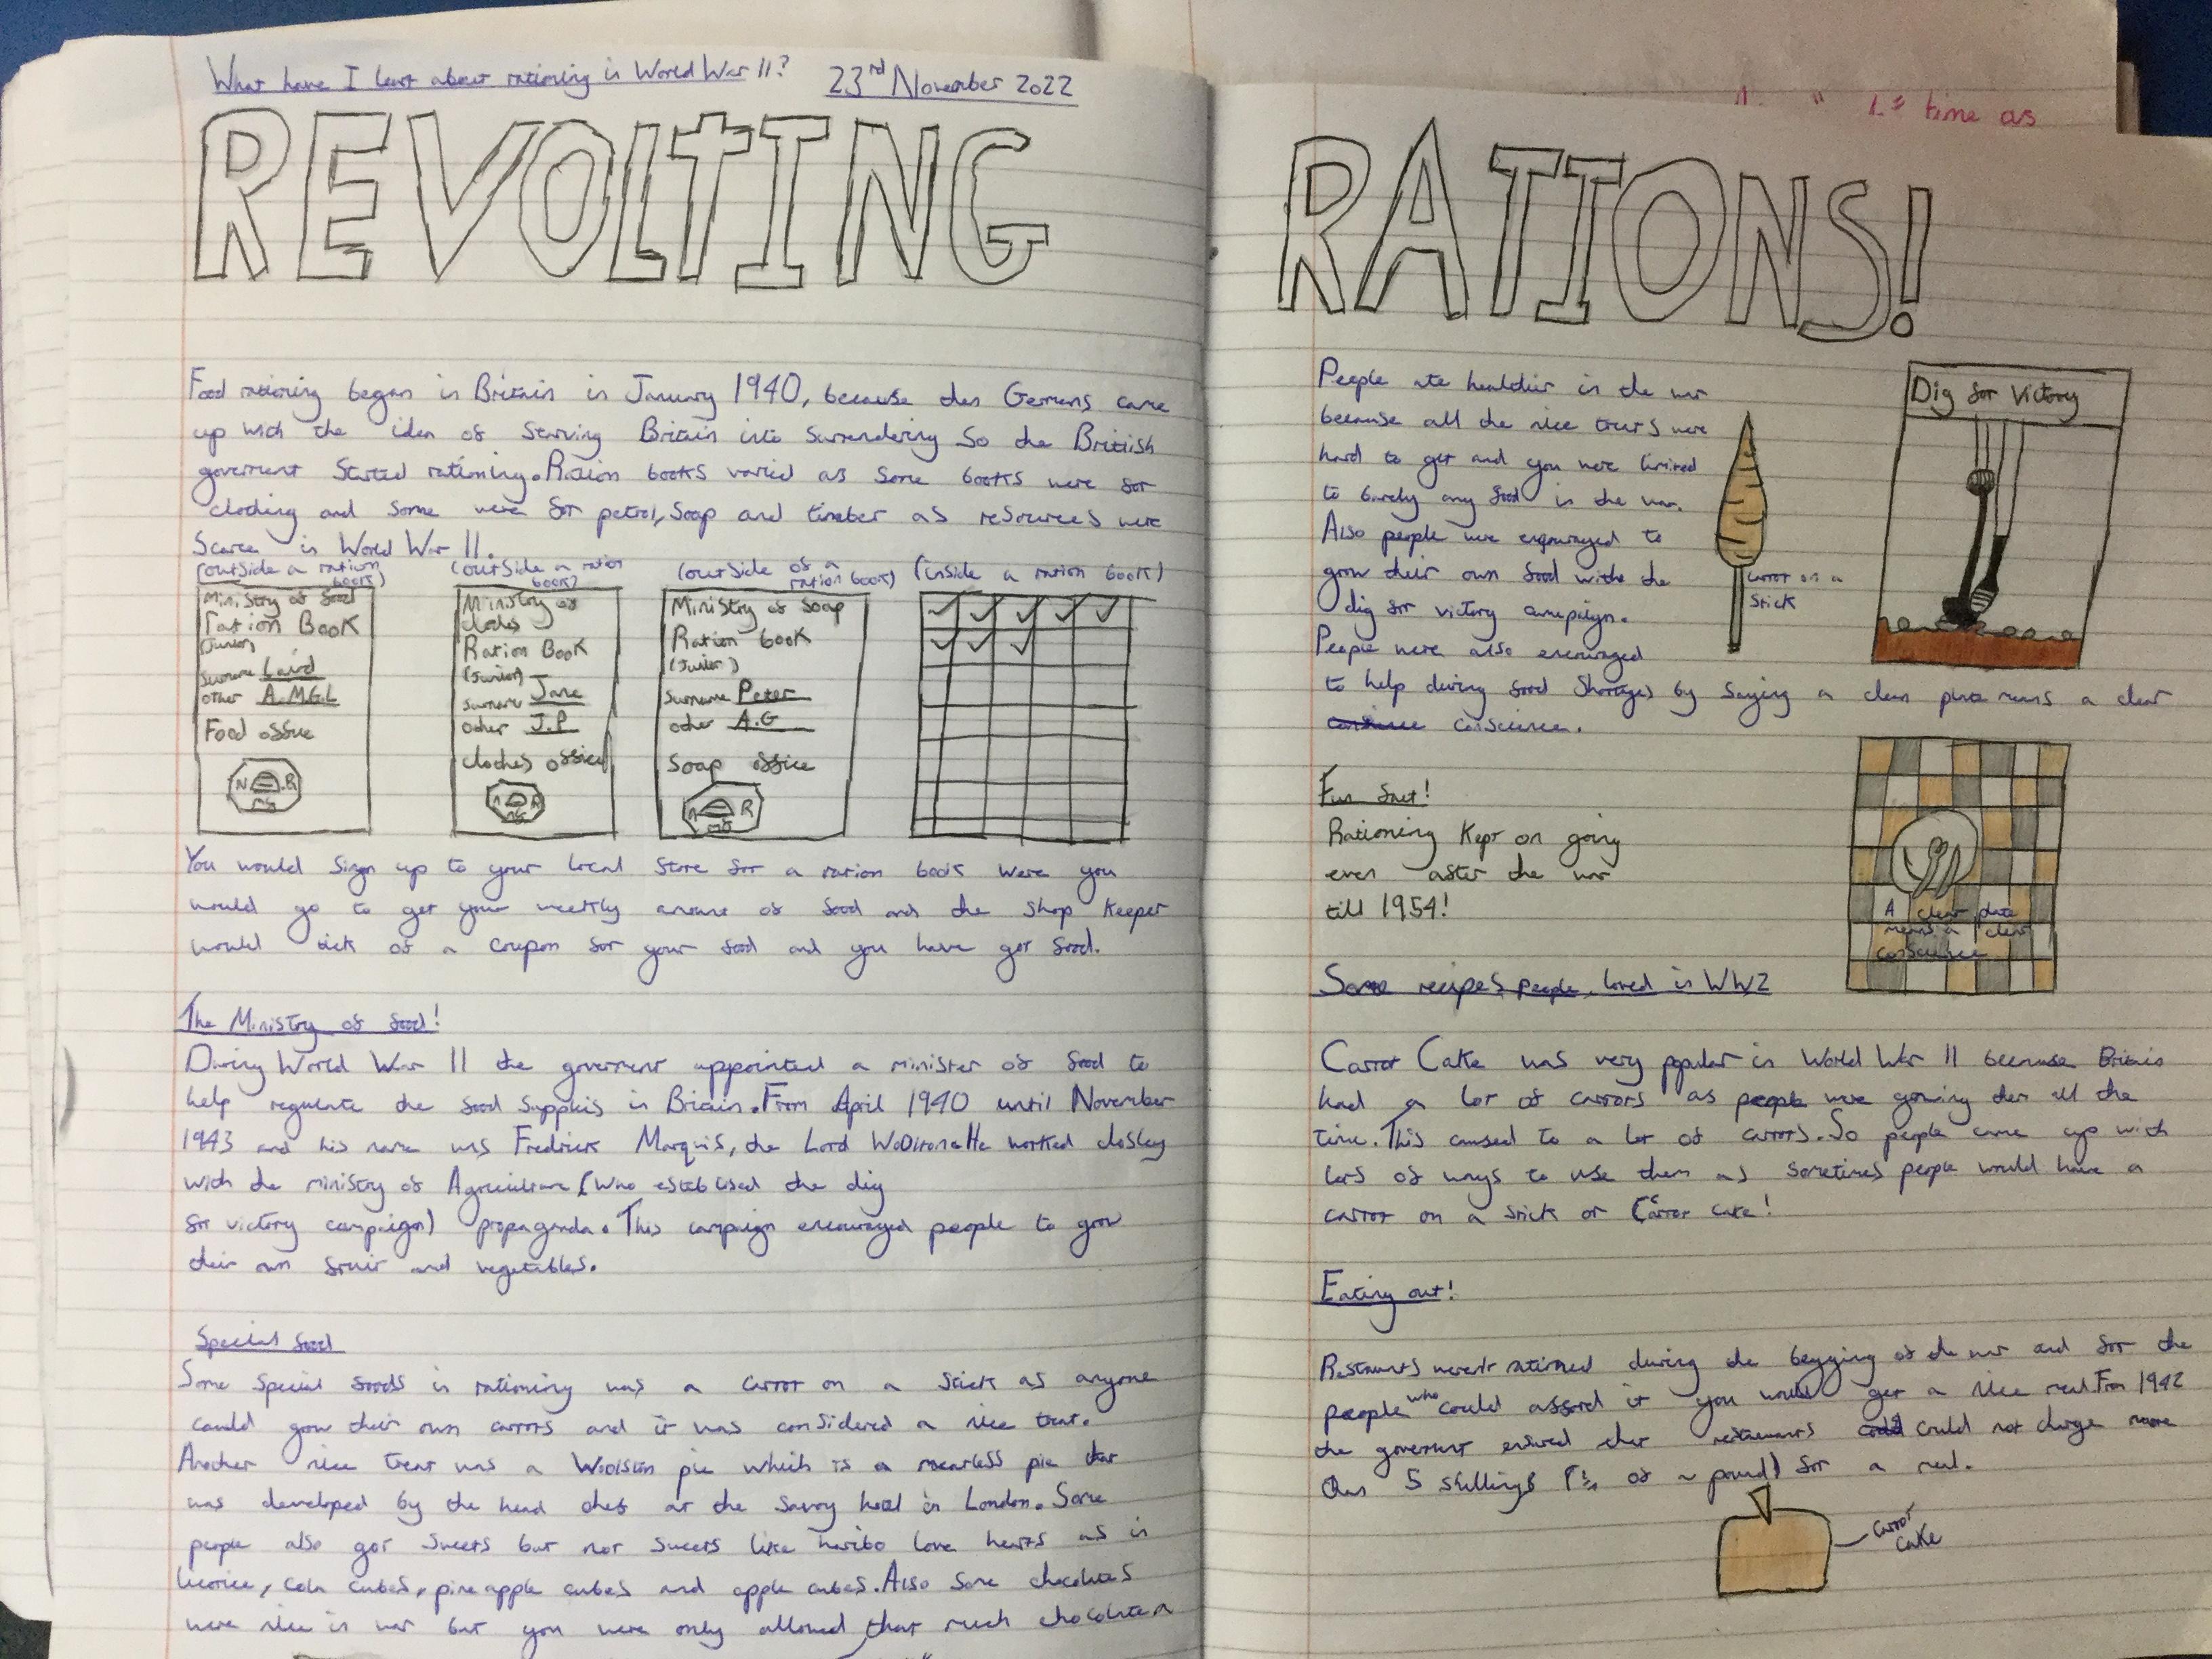 What have I leart about rationing in World War II? 23rd November 2022
REVOLTING
Food rationing began in Britain in January 1940, because then Germens came
up with the idea of starving Britain into surrendering So the Brittish
goverment Started rationing. Ration books varied as some books were for
clothing and some were for petrol, Soap and timber as resources were
Scarce in World War II.
(outside a ration book)
Ministry of food
Ration Book
(Junior)
surname Laird
other A.M.G.L
Food offive
N R
MG
(outside a ration book)
Ministry of
clothes
Ration Book
(Junior)
surname Jane
other J.P
clothes office
(outside of a ration book)
Ministry of Soap
Ration book
(Junior)
surname Peter
other A.G
Soap office
(inside a ration book)
You would Sign up to your local store for a ration book were you
would go to get your weekly amount of food and the shop keeper
would tick of a coupon for your food and you have got food.
The Ministry of food!
During World War II the goverment appointed a minister of food to
help regulate the food supplies in Britain. From April 1940 until November
1943 and his name was Fredrick Marquis, the Lord Woolton. He worked closley
with the ministry of Agriculture (who establised the dig
for victory campaign) propaganda. This campaign encouraged people to grow
their own fruit and vegetables.
Special food
Some special foods in rationing was a carrot on a stick as anyone
could grow their own carrots and it was considered a nice treat.
Another nice treat was a Woolston pie which is a meatless pie that
was developed by the head chef at the Savoy hotel in London. Some
people also got sweets but not sweets like haribo love hearts as in
licorice, cola cubes, pineapple cubes and apple cubes. Also some chocolates
were nice in war but you were only allowed that much chocolate a
time as
RATIONS!
People ate healthier in the war
because all the nice treats were
hard to get and you were limited
to barely any food in the war.
Also people were encouraged to
grow their own food with the
dig for victory campaign.
People were also encouraged
to help during food shortages by saying a clean plate means a clear
conscience.
carrot on a
stick
Dig for Victory
Fun fact!
Rationing kept on going
even after the war
till 1954!
A clear plate
means a clear
conscience
Some recipes people loved in WW2
Carrot Cake was very popular in World War II because Britain
had a lot of carrots as people were growing them all the
time. This caused to a lot of carrots. So people came up with
lots of ways to use them as sometimes people would have a
carrot on a stick or Carrot cake!
Eating out!
Restaunts weren't rationed during the begging of the war and for the
people who could afford it you would get a nice meal. From 1942
the goverment ensured that restaurants could not charge more
than 5 shillings of a pound) for a meal.
carrot
cake